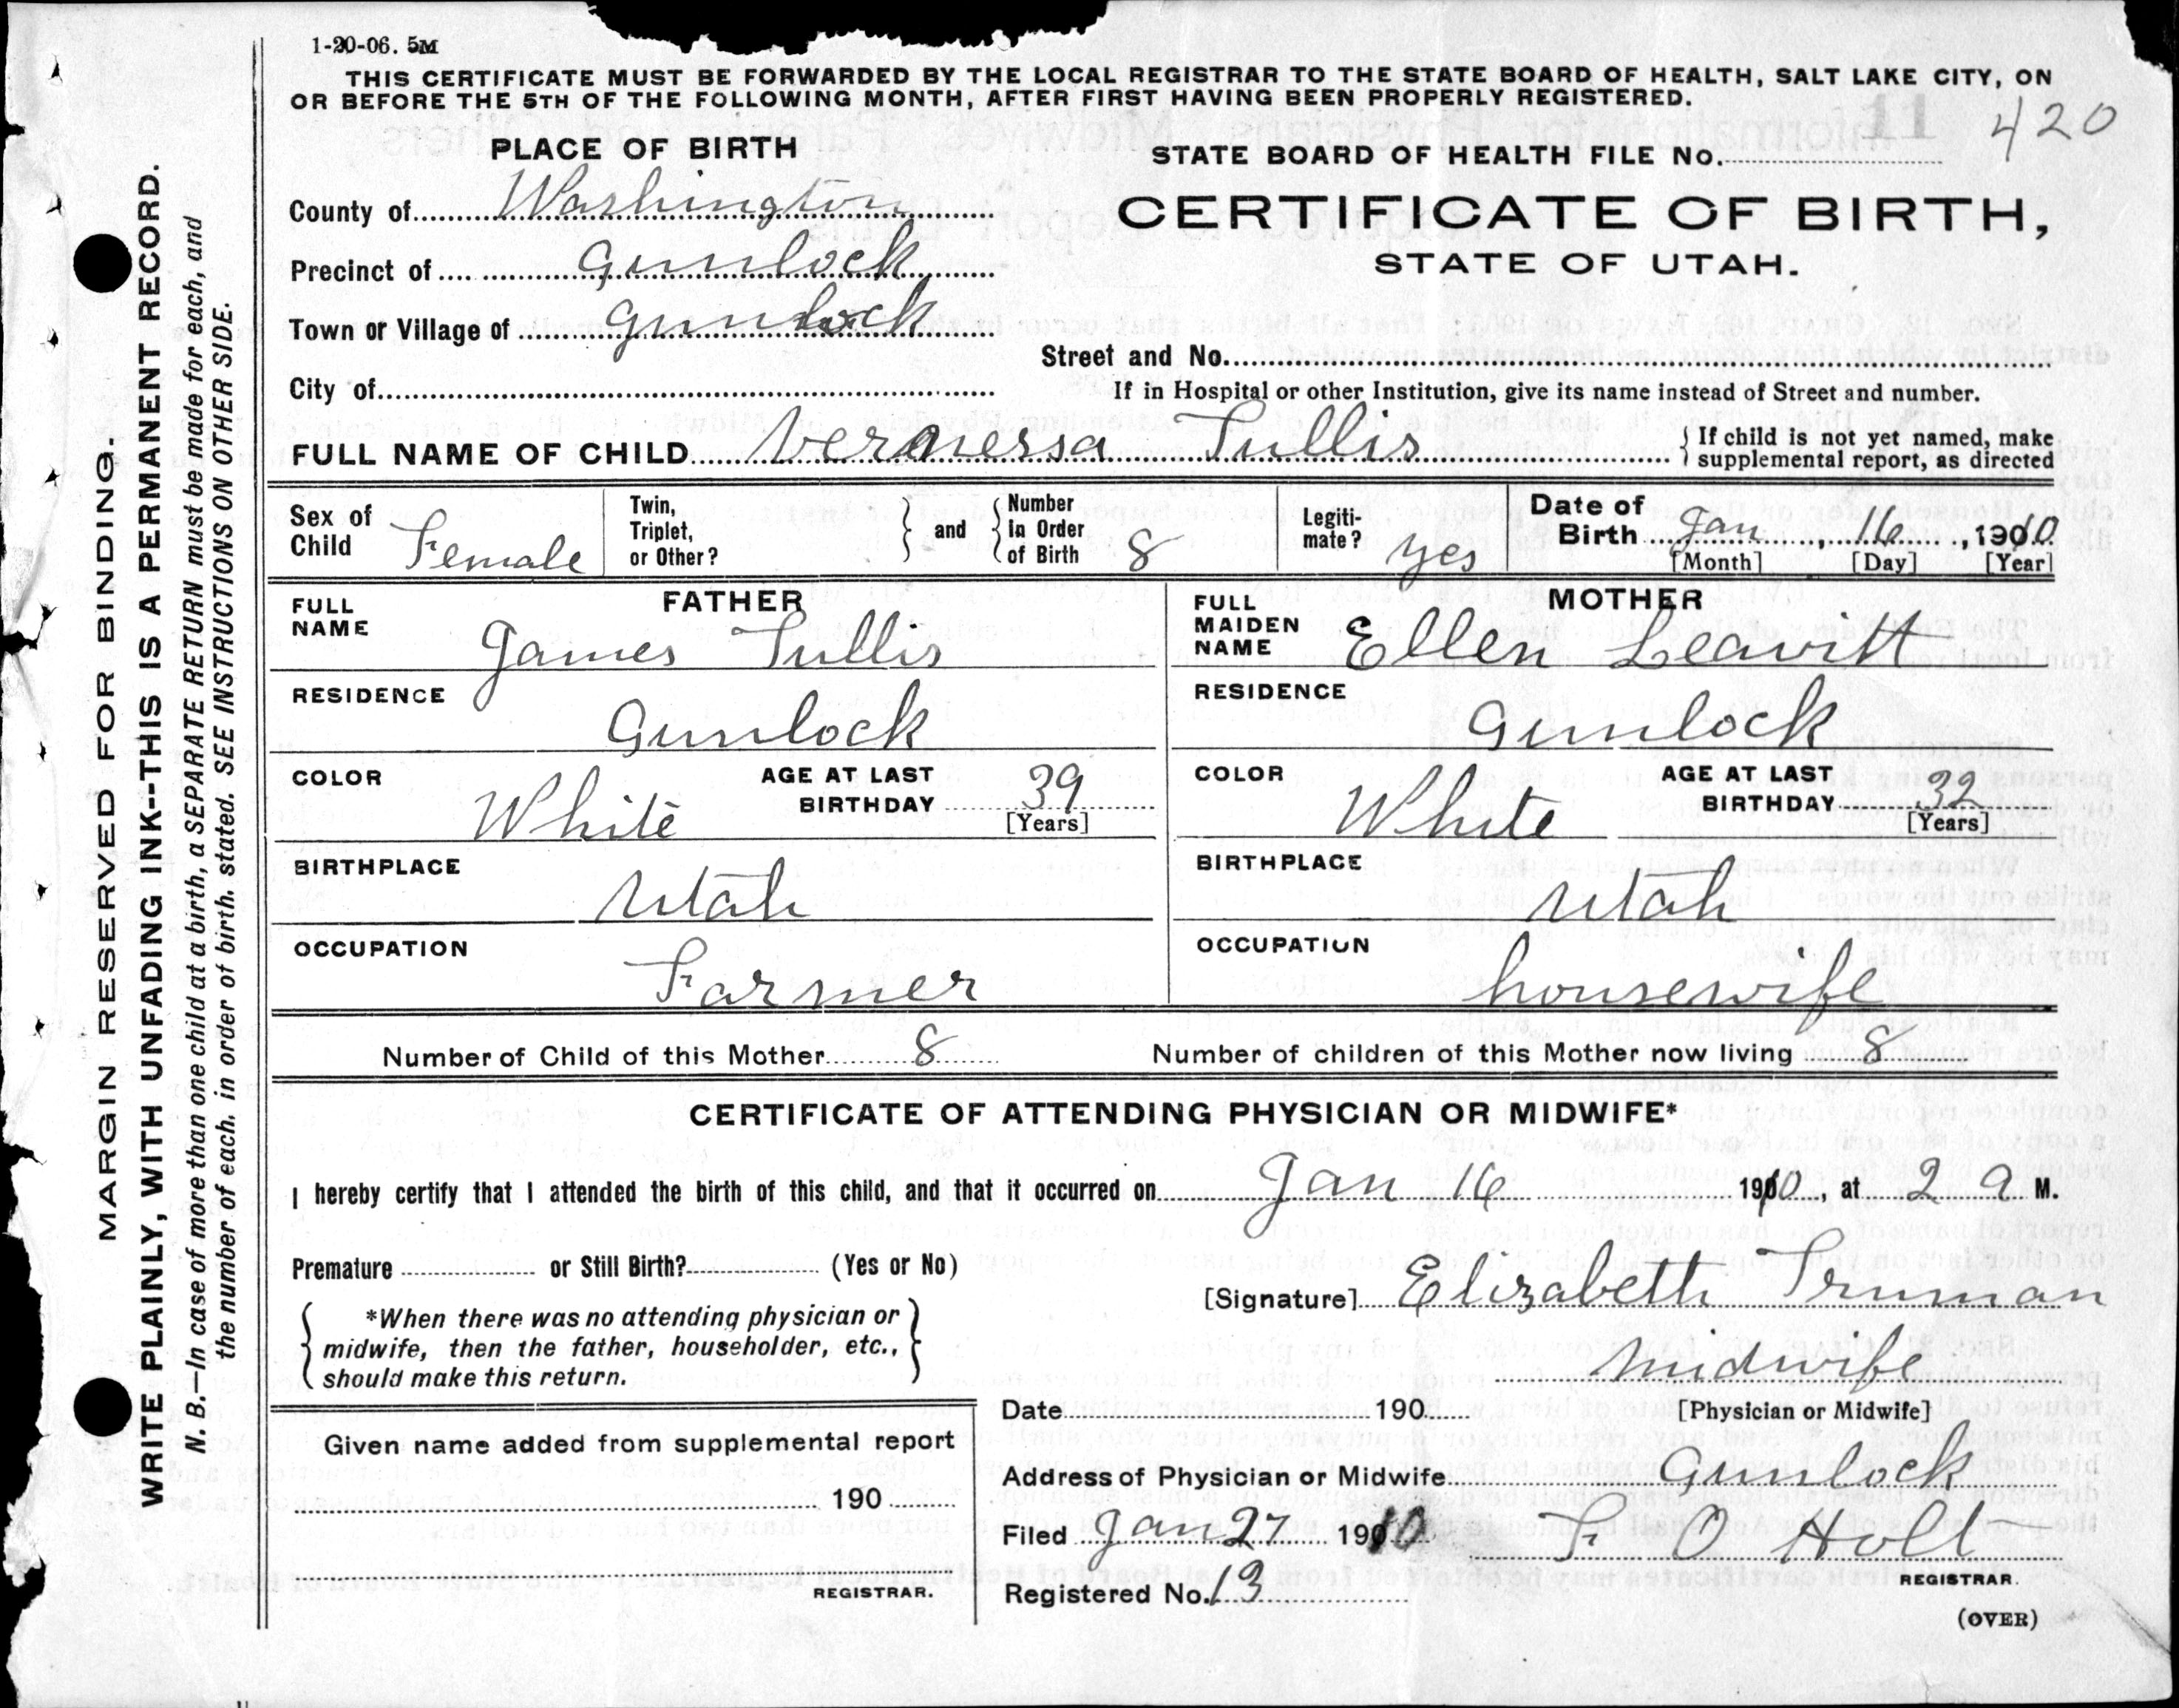 1-20-06. 5M
THIS CERTIFICATE MUST BE FORWARDED BY THE LOCAL REGISTRAR TO THE STATE BOARD OF HEALTH, SALT LAKE CITY, ON
OR BEFORE THE 5TH OF THE FOLLOWING MONTH, AFTER FIRST HAVING BEEN PROPERLY REGISTERED.
11
420
PLACE OF BIRTH
STATE BOARD OF HEALTH FILE No.
County of Washington
CERTIFICATE OF BIRTH,
Precinct of Gunlock
STATE OF UTAH.
Town or Village of Gunlock
Street and No.
City of
If in Hospital or other Institution, give its name instead of Street and number.
FULL NAME OF CHILD Veranessa Tullis { If child is not yet named, make
supplemental report, as directed
Sex of Child Female
Twin, Triplet, or Other?
and
Number in Order of Birth 8
Legitimate? yes
Date of Birth Jan, 16, 1910
[Month] [Day] [Year]
FATHER
FULL NAME James Tullis
RESIDENCE Gunlock
COLOR White
AGE AT LAST BIRTHDAY 39
[Years]
BIRTHPLACE Utah
OCCUPATION Farmer
MOTHER
FULL MAIDEN NAME Ellen Leavitt
RESIDENCE Gunlock
COLOR White
AGE AT LAST BIRTHDAY 32
[Years]
BIRTHPLACE Utah
OCCUPATION housewife
Number of Child of this Mother 8
Number of children of this Mother now living 8
CERTIFICATE OF ATTENDING PHYSICIAN OR MIDWIFE*
I hereby certify that I attended the birth of this child, and that it occurred on Jan 16 1910, at 2 a M.
Premature or Still Birth? (Yes or No)
[Signature] Elizabeth Truman
*When there was no attending physician or
midwife, then the father, householder, etc.,
should make this return.
midwife
[Physician or Midwife]
Date 190
Given name added from supplemental report
190
REGISTRAR.
Address of Physician or Midwife Gunlock
Filed Jan 27 1910
F O Holt
REGISTRAR.
Registered No. 13
(OVER)
MARGIN RESERVED FOR BINDING.
WRITE PLAINLY, WITH UNFADING INK--THIS IS A PERMANENT RECORD.
N. B.—In case of more than one child at a birth, a SEPARATE RETURN must be made for each, and
the number of each, in order of birth, stated. SEE INSTRUCTIONS ON OTHER SIDE.